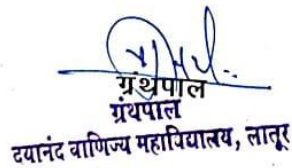 ग्रंथपाल
ग्रंथपाल
दयानंद वाणिज्य महाविद्यालय, लातूर